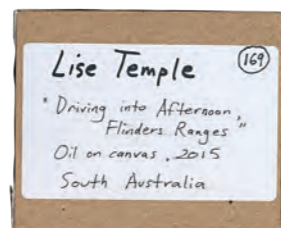 Lise Temple 169
"Driving into Afternoon,
Flinders Ranges"
Oil on canvas, 2015
South Australia